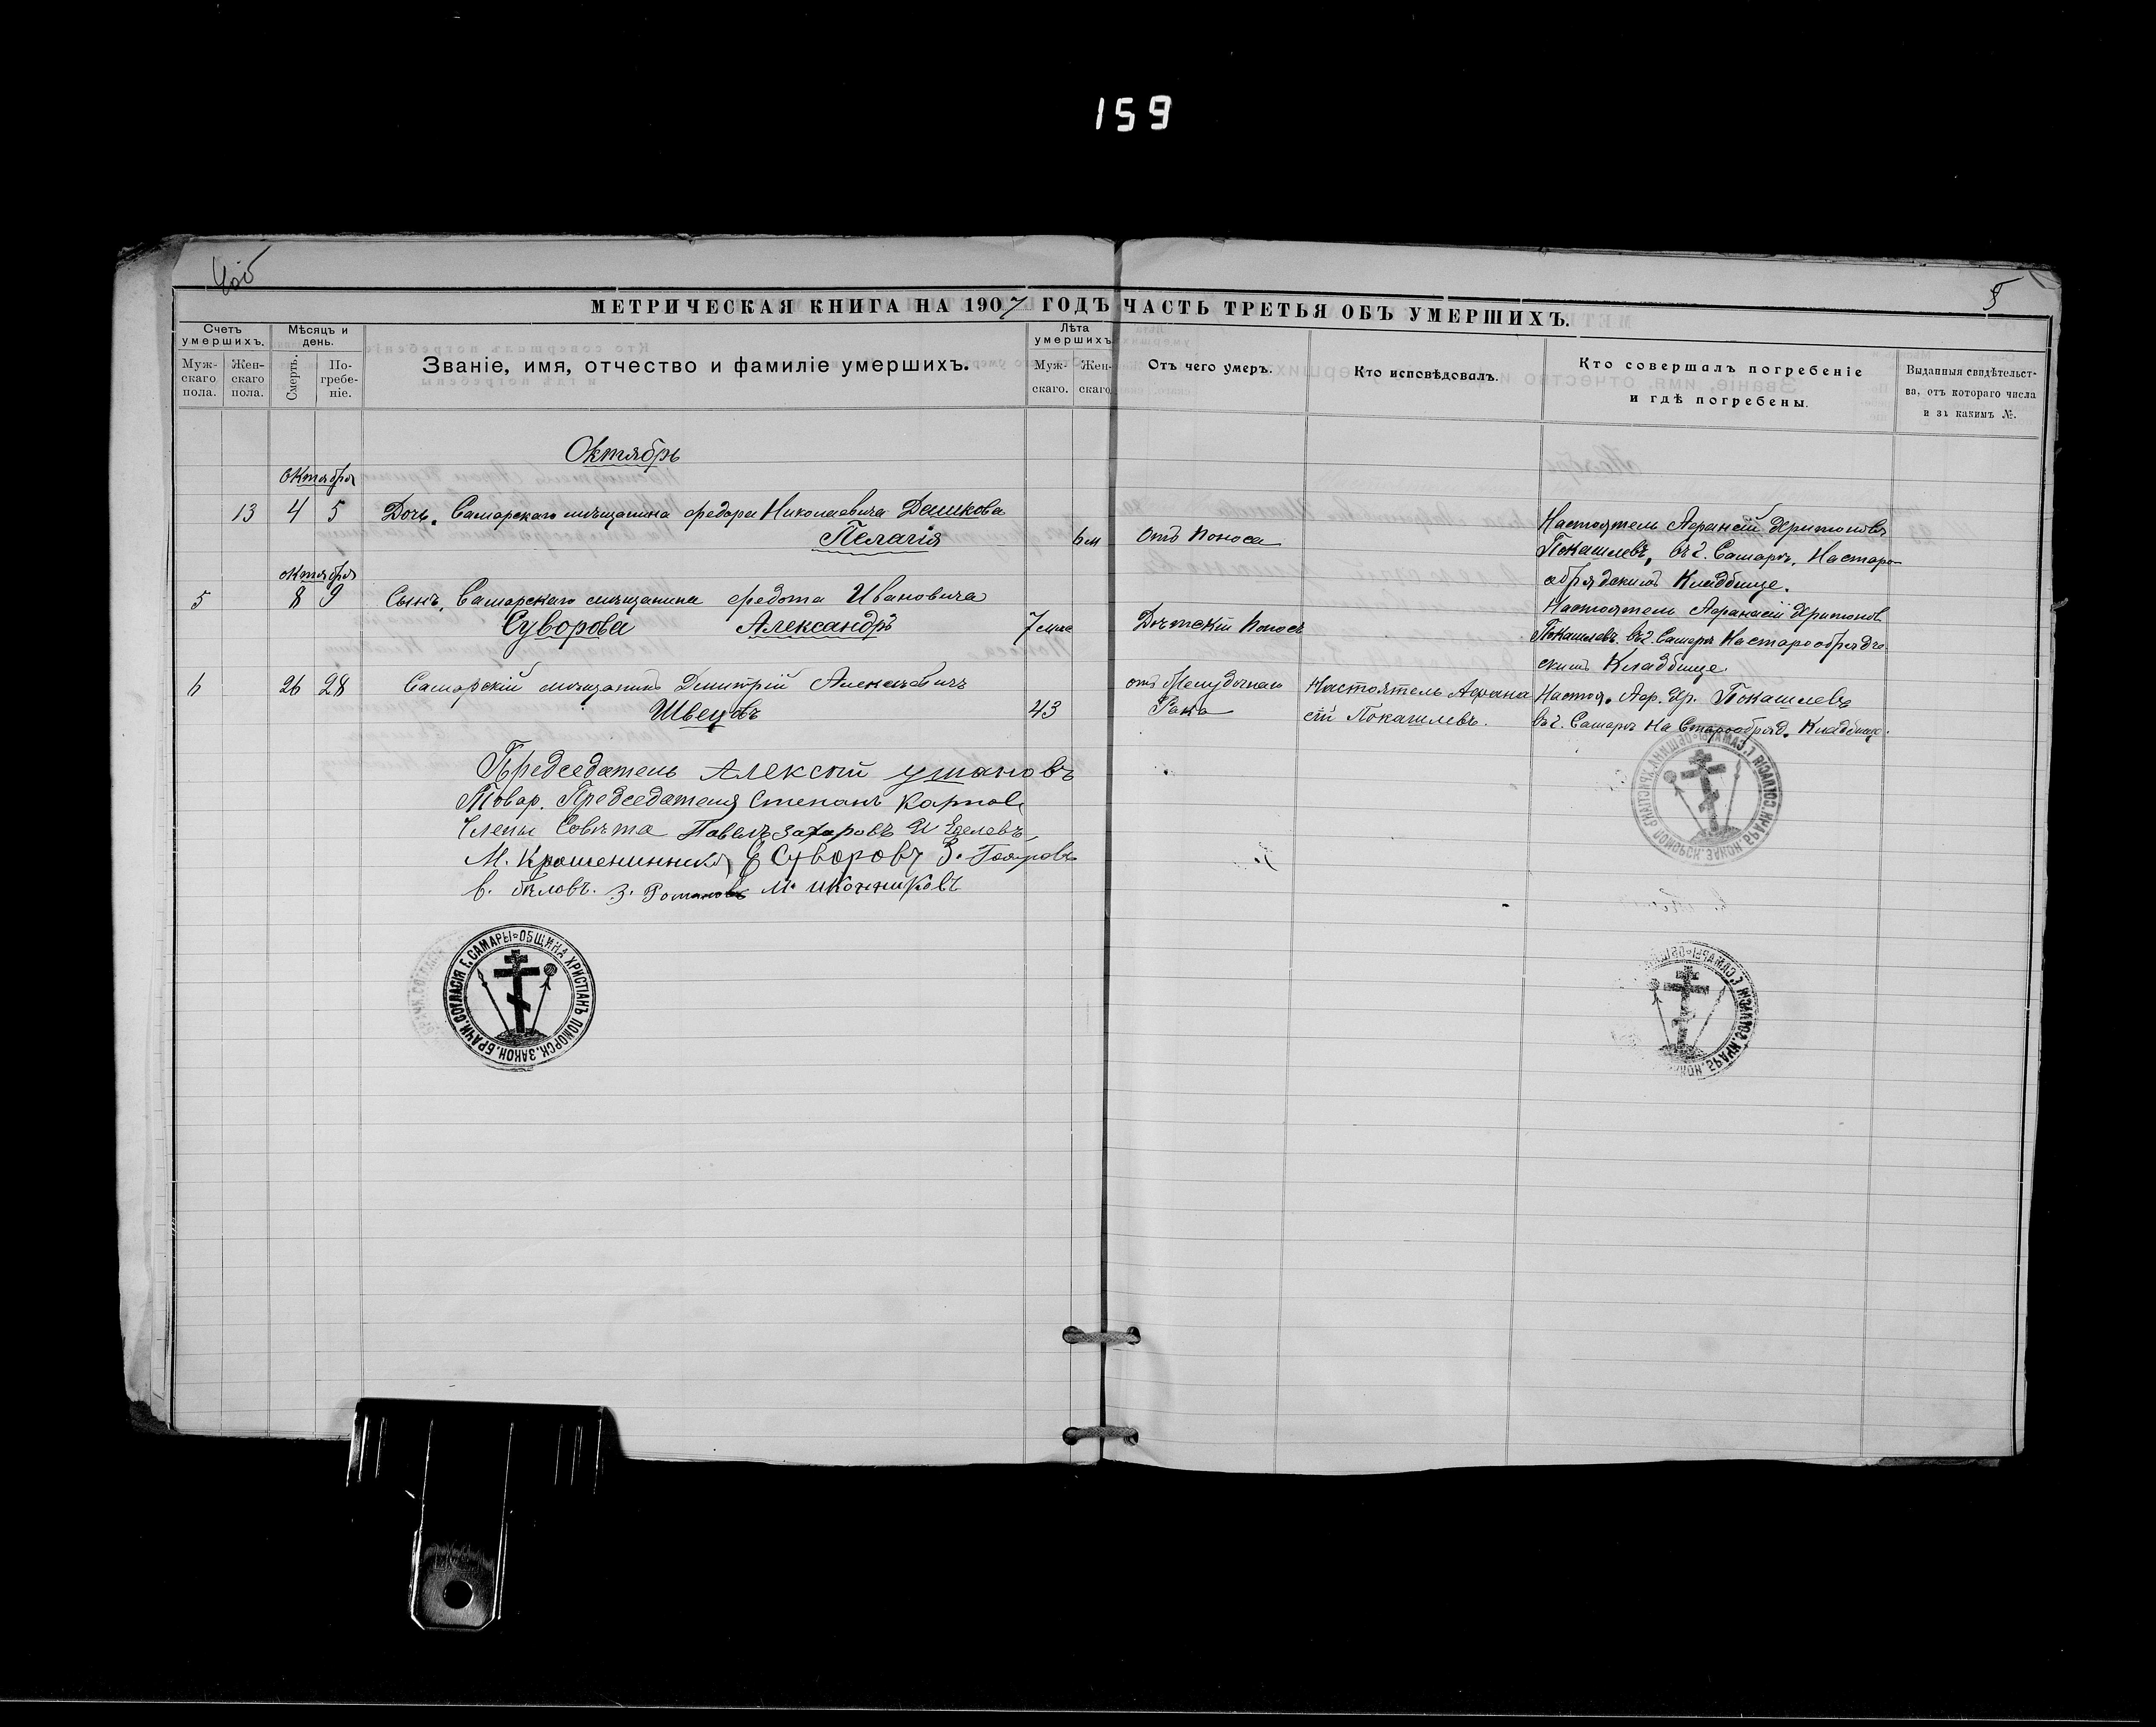 159
4 об
5
МЕТРИЧЕСКАЯ КНИГА НА 1907 ГОДЪ ЧАСТЬ ТРЕТЬЯ ОБЪ УМЕРШИХЪ.
Счетъ умершихъ.
Муж-скаго пола.
Жен-скаго пола.
Мѣсяцъ и день.
Смерть.
По-гребе-ніе.
Званіе, имя, отчество и фамиліе умершихъ.
Лѣта умершихъ
Муж-скаго.
Жен-скаго
Отъ чего умеръ.
Кто исповѣдовалъ.
Кто совершалъ погребеніе и гдѣ погребены.
Выданныя свидѣтельст-ва, отъ котораго числа и за какимъ №.
Октябрь
октября
13 4 5 Дочь, Самарскаго мѣщанина Федора Николаевича Дашкова
Пелагія 6 м Отъ Поноса
Настоятель Афанасій Харитоновъ
Покашлевъ, въ г. Самарѣ, На старо-
обрядскимъ Кладбище.
октября
5 8 9 Сынъ, Самарскаго мѣщанина Федота Ивановича
Суворова Александръ 7 мѣс Дѣтскій Поносъ
Настоятель Афанасій Харитонов
Покашлевъ. въ г. Самарѣ На старообрядче
скимъ Кладбище.
6 26 28 Самарскій мѣщанинъ Дмитрій Алексѣевичъ
Швецовъ 43 отъ Желудочнаго
Рака
Настоятель Афана
сій Покашлевъ.
Настоя. Аф. Хр. Покашлевъ
въ г. Самарѣ На Старообряд. Кладбище.
Председатель Алексѣй ушановъ
Товар. Председателя Степанъ Карпов
Члены Совѣта Павелъ Захаровъ
М. Крашенинниковъ Е Суворовъ З.
в. бѣловъ. З. Романовъ М. иконниковъ
ОБЩИНА ХРИСТІАНЪ ПОМОРСК. ЗАКОН. БРАЧН. СОГЛАСІЯ Г. САМАРЫ